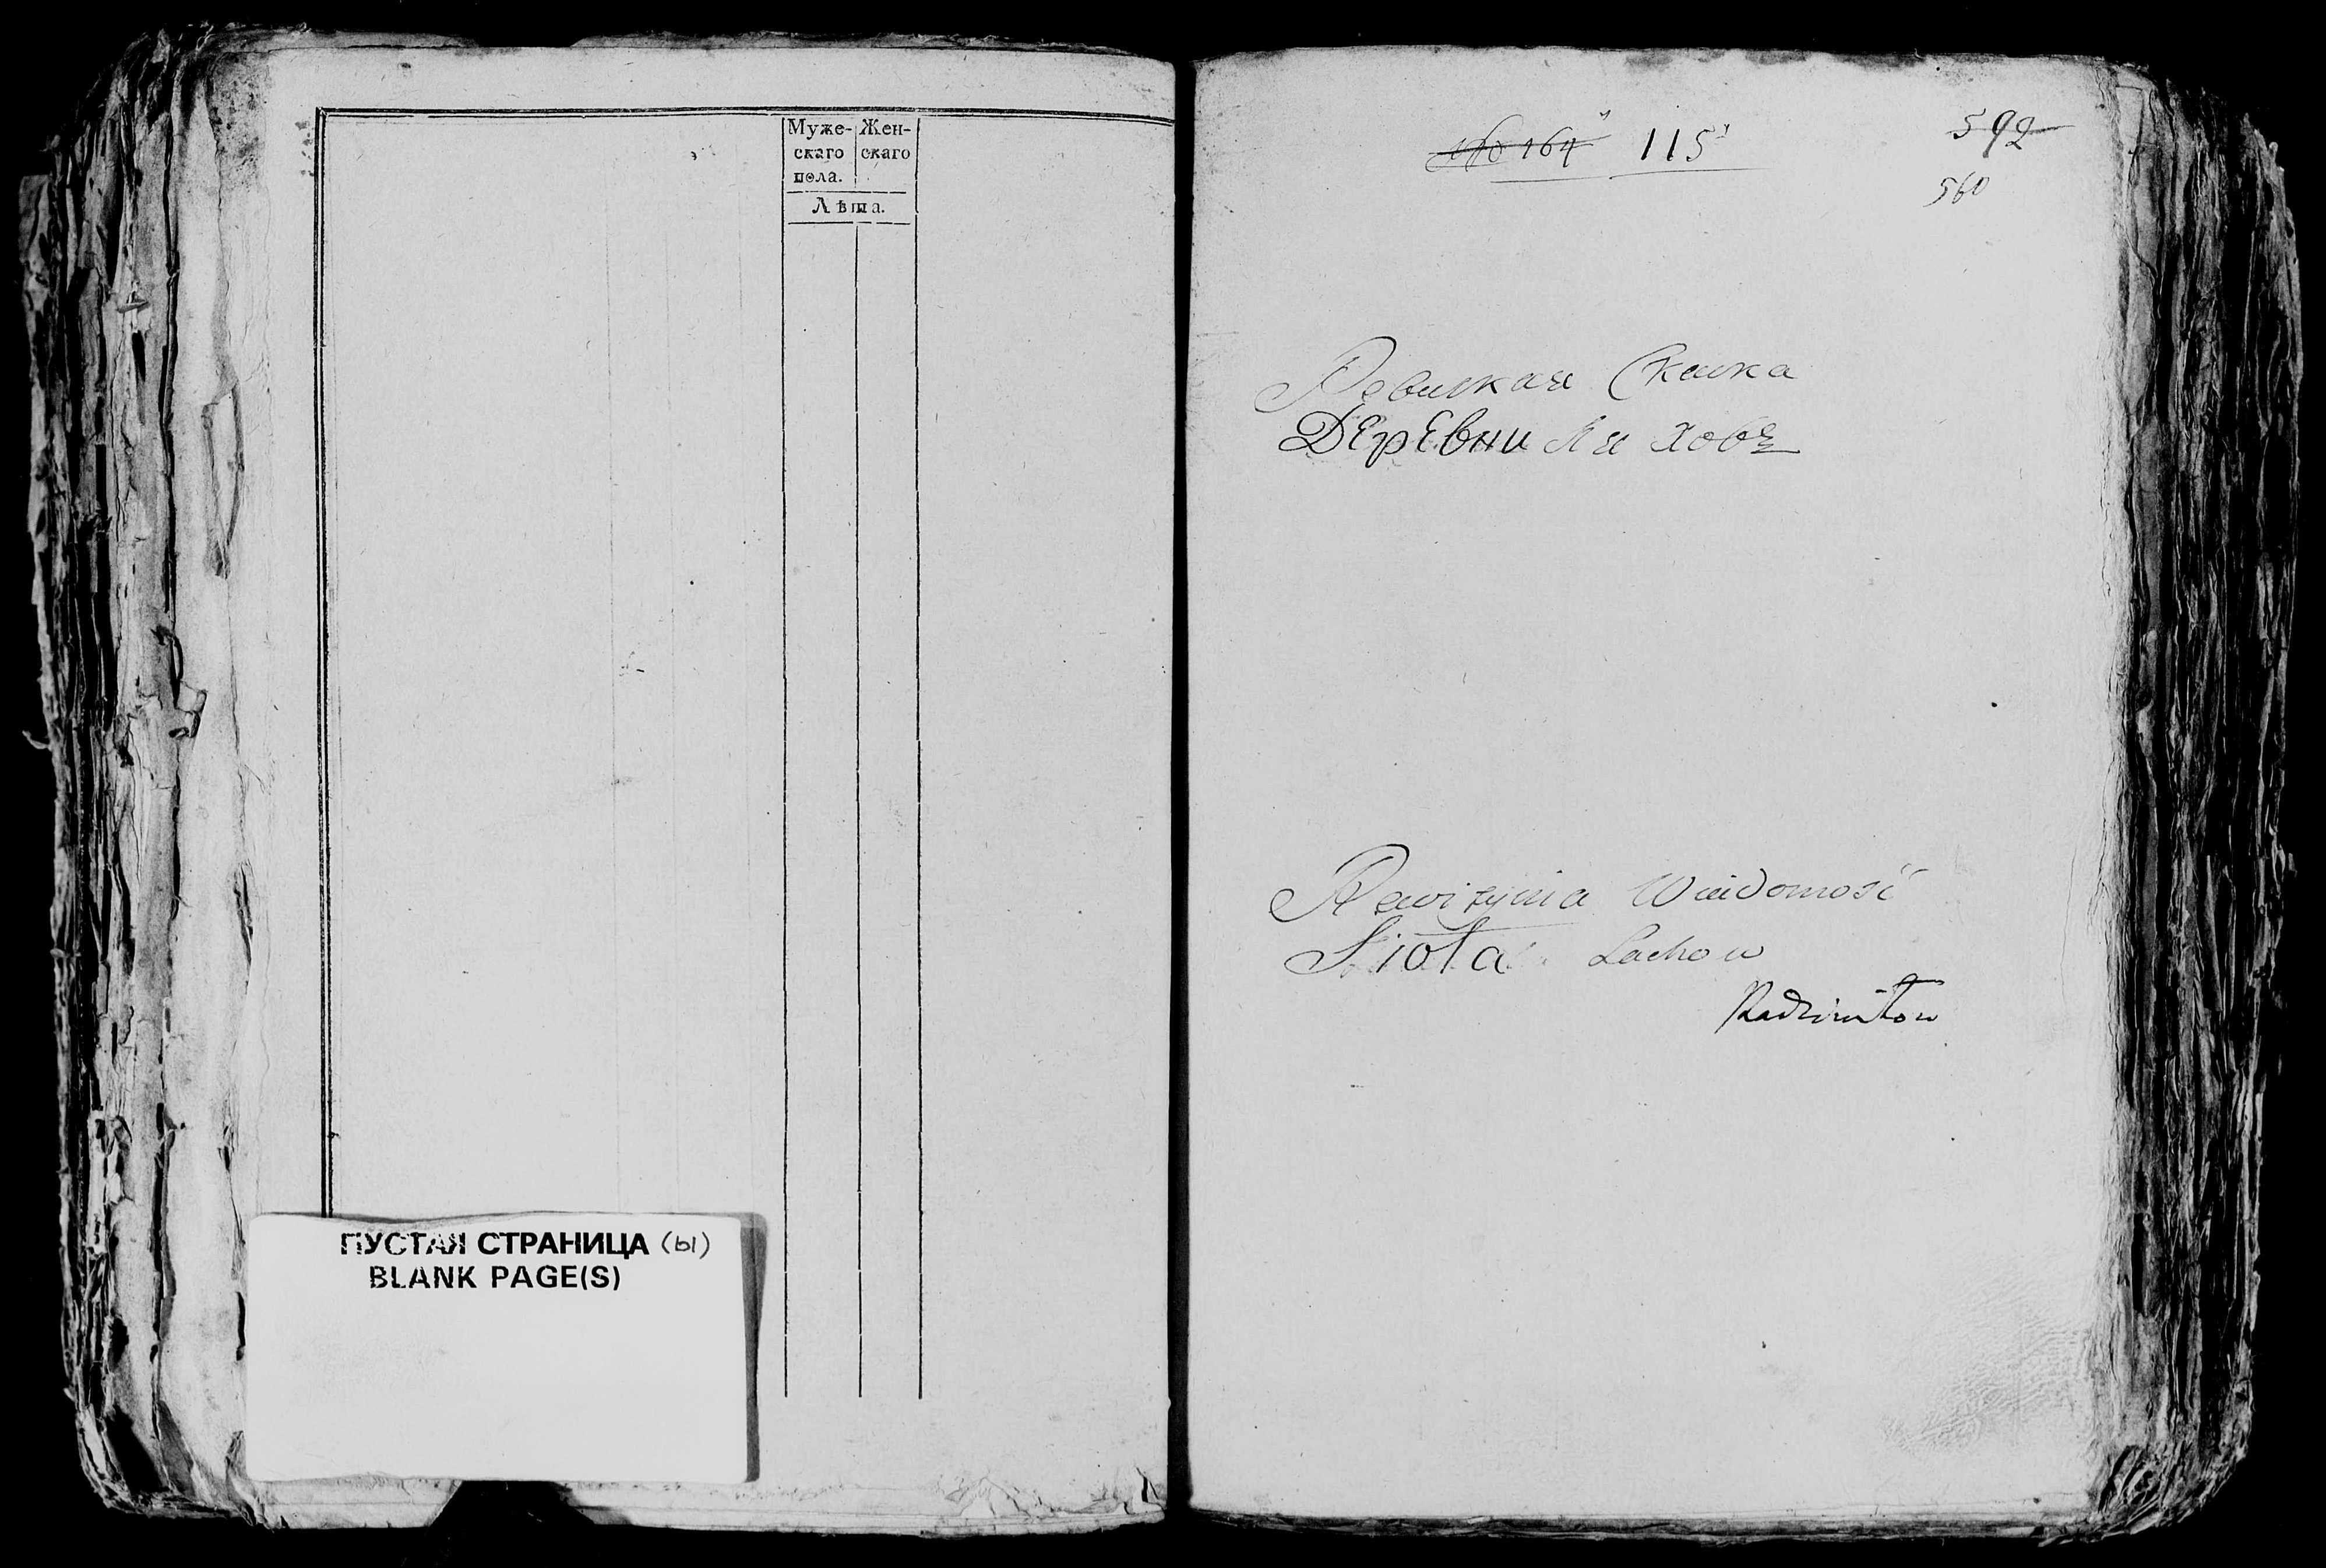 Муже-
скаго
пола.
Жен-
скаго
Лѣта.
ПУСТАЯ СТРАНИЦА (ы)
BLANK PAGE(S)
164 115
592
560
Ревиская Скаска
Деревни Ляховъ
Rewizyina Wiadomość
Sioła Lachow